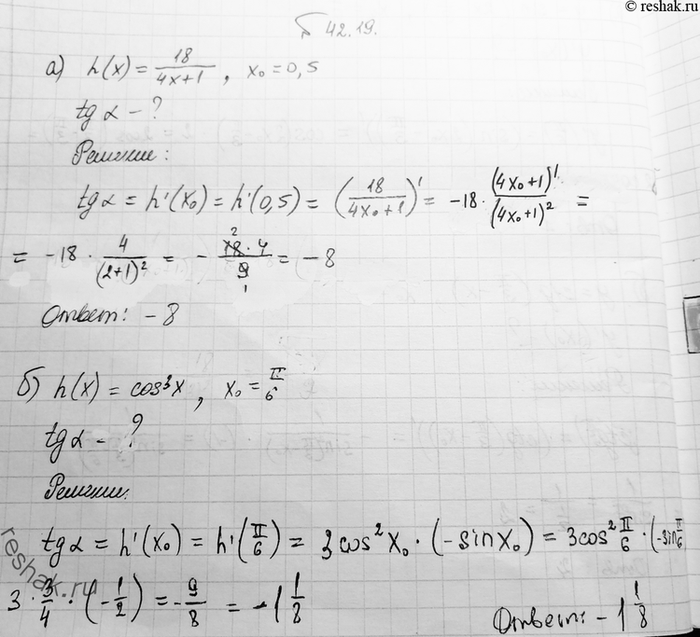 © reshak.ru
42.19.
а) h(x) = 18/(4x+1), x₀ = 0,5
tg α - ?
Решение:
tg α = h'(x₀) = h'(0,5) = (18/(4x₀+1))' = -18 · (4x₀+1)'/(4x₀+1)² =
= -18 · 4/(2+1)² = - 18·4/9 = -8
Ответ: -8
б) h(x) = cos³x, x₀ = π/6
tg α - ?
Решение:
tg α = h'(x₀) = h'(π/6) = 3cos²x₀ · (-sin x₀) = 3cos² π/6 · (-sin π/6
3 · 3/4 · (-1/2) = -9/8 = -1 1/8
Ответ: -1 1/8
reshak.ru